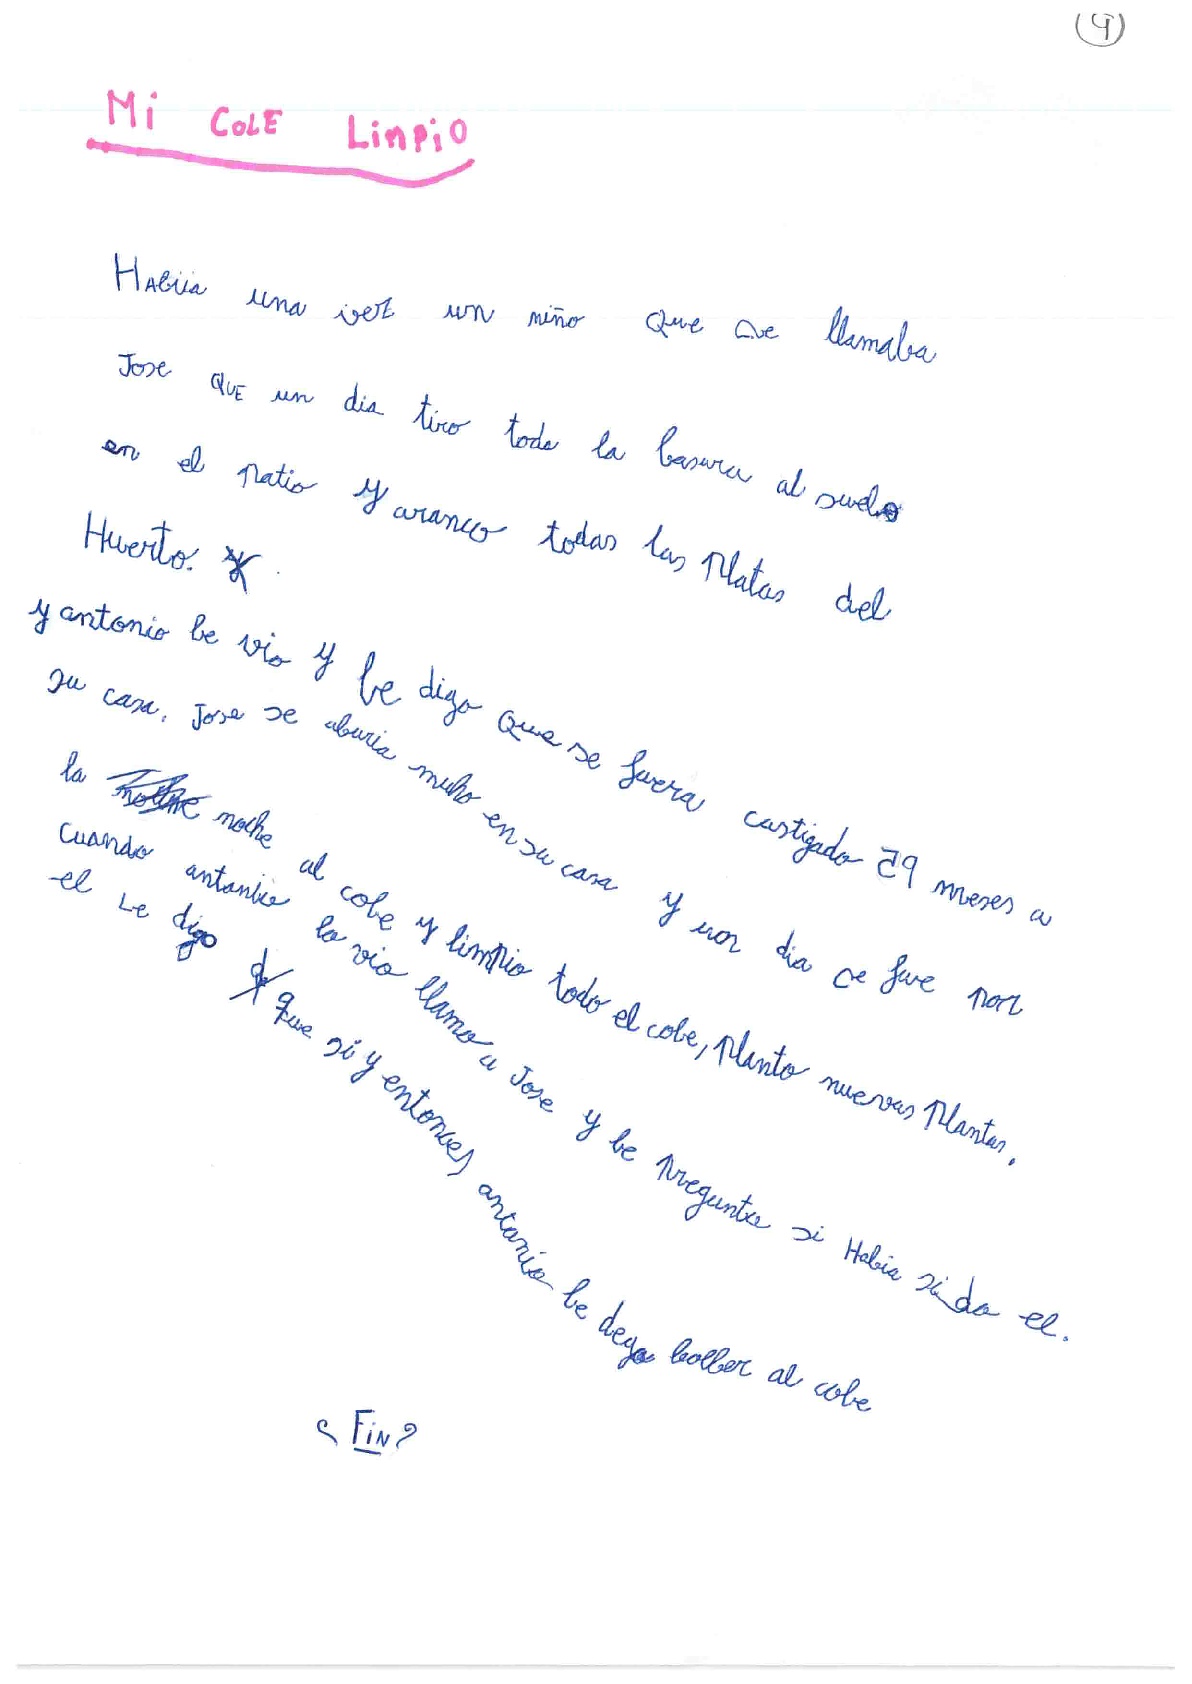 4
Mi COLE LinPiO
Habiia una vez un niño que se llamaba
Jose QUE un dia tiro toda la basura al suelo
en el patio y aranco todas las platas del
Huerto.
y antonio be vio y be digo que se fuera castigado 29 meses a
su casa. Jose se aburia muho en su casa y un dia se fue por
la noche al cobe y limpio todo el cobe, planto nuevas plantas.
cuando antonio lo vio llamo a Jose y be pregunto si Habia sido el.
el Le digo que si y entonces antonio be dego bolber al cobe
¿Fin?